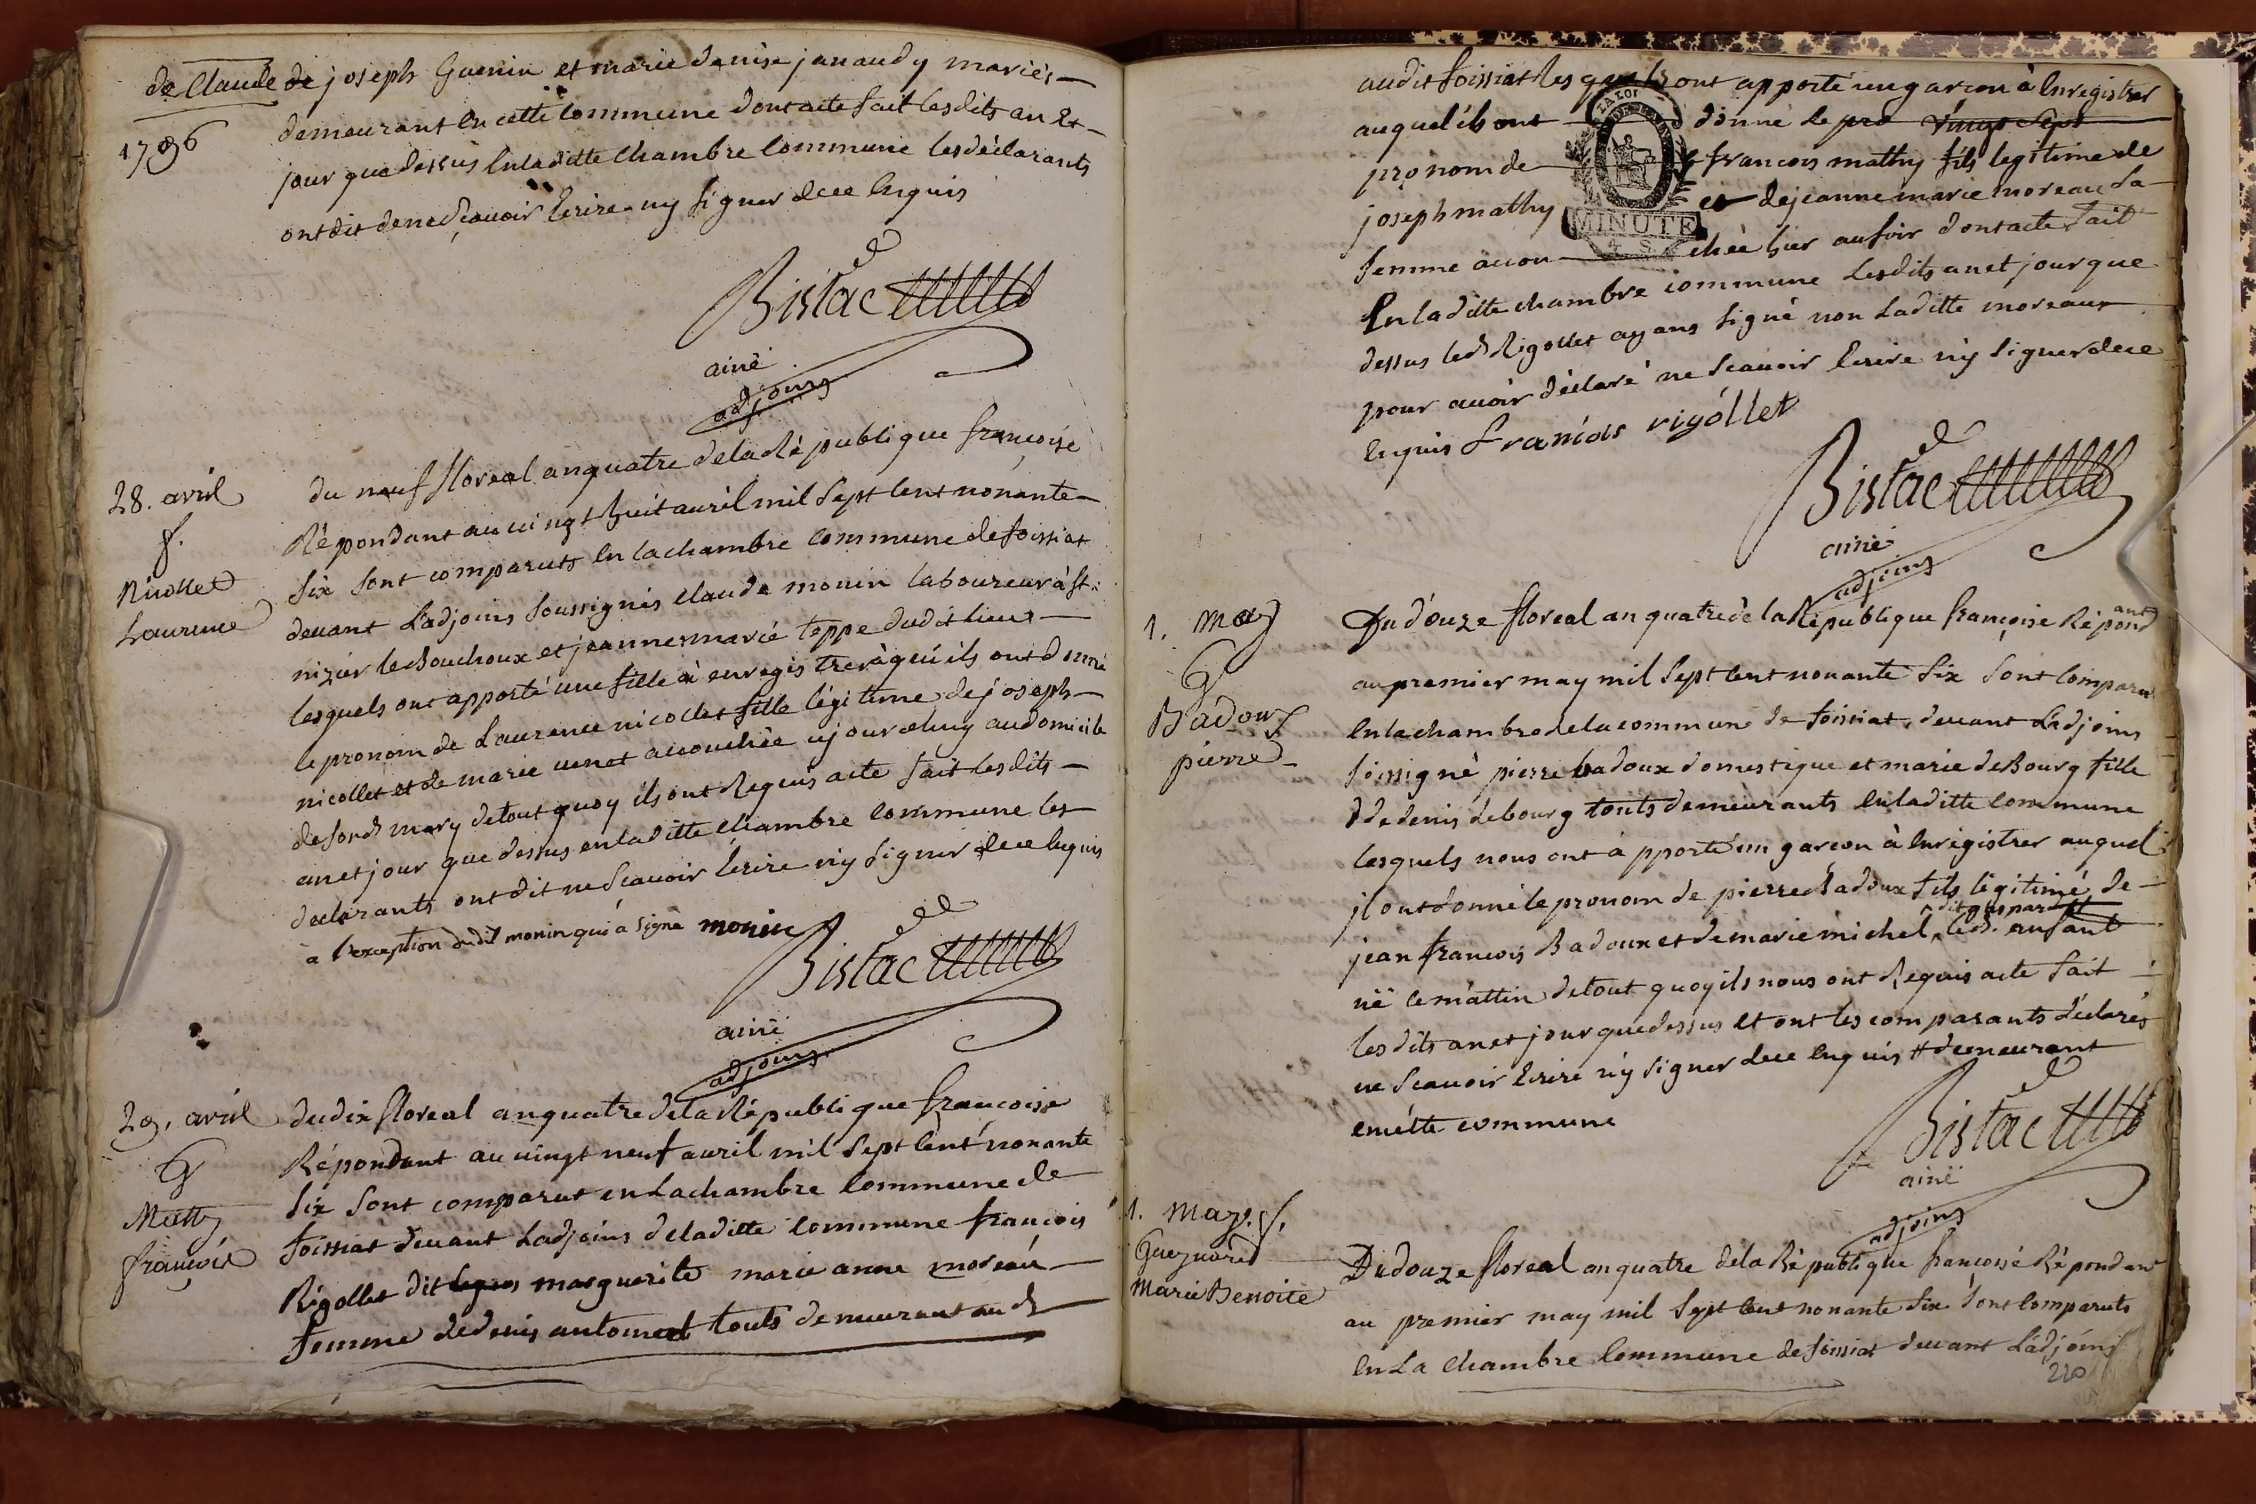 de Claude de joseph Guenin et marie denise janaudy mariés
1796
demeurant en cette Commune dont acte fait lesdits an Et
jour que dessus Enladitte Chambre Commune les déclarants
ont dit de ne sçavoir Ecrire ny signer de ce Enquis
Bistac
ainé
adjoins
28. avril
f.
Nicollet
Laurence
du neuf floreal an quatre de la République francoise
Répondant au vingt huit auril mil Sept Cent nonante
Six Sont comparuts En la chambre Commune de foissiat
deuant Ladjoins Soussignés Claude monin laboureur à St.
nizier le Bouchoux et jeanne marie teppe dudit lieu
lesquels ont apporté une fille à enregistrer à qui ils ont donné
le pronom de Laurence nicollet fille légitime de joseph
nicollet et de marie uenet accouchée cejourdhuy au domicile
de sond mary de tout quoy ils ont Requis acte fait lesdits
an et jour que dessus en laditte Chambre Commune les
declarants ont dit ne Scauoir Ecrire n'y Signer de ce Enquis
à l'exception dudit monin qui à Signé monin
Bistac
ainé
adjoins
29. avril
G
Matty
françois
du dix floreal an quatre de la République francoise
Répondant au vingt neuf auril mil Sept Cent nonante
Six Sont comparut en La chambre Commune de
foissiat deuant Ladjoins de laditte Commune françois
Rigollet dit marguerite marie anne moreau
femme de denis antoinet touts demeurant aud
audit foissiat lesquels ont apporté un garcon à Enregistrer
auquel ils ont donné le pro vingt Sept
pronom de francois mathy fils legitime de
joseph mathy et de jeanne marie moreau Sa
femme accouchée hier au soir dont acte fait
En laditte chambre commune Lesdits an et jour que
dessus led Rigollet ayans Signé non Laditte moreaux
pour auoir déclaré ne Scauoir Ecrire n'y Signer de ce
Enquis francois rigóllet
LA LOI
MINUTE
4 S.
Bistac
ainé
adjoins
1. may
G
Badoux
pierre
Du douze floreal an quatre de la République françoise Répond
ant
au premier may mil Sept Cent nonante Six Sont Comparu
En la chambre de la commune de foissiat deuant Ladjoins
soissigné pierre badoux domestique et marie deBourg fille
de denis debourg touts demeurants En laditte Commune
lesquels nous ont apporté un garcon à Enrégistrer auquel
jl ont donné le pronom de pierre Badoux fils légitime de
jean francois Badoux et de marie michel led. enfant
né ce mattin de tout quoy ils nous ont Requis acte fait
lesdits an et jour que dessus Et ont les comparants déclarés
ne Scauoir Ecrire n'y signer de ce Enquis # demeurant
en cétte commune
Bistac
ainé
adjoins
1. may. f.
Marie Benoite
Du douze floreal an quatre de la République francoise Répondant
au premier may mil Sept Cent nonante Six Sont Comparuts
En La Chambre Commune de foissiat deuant Ladjoins
220